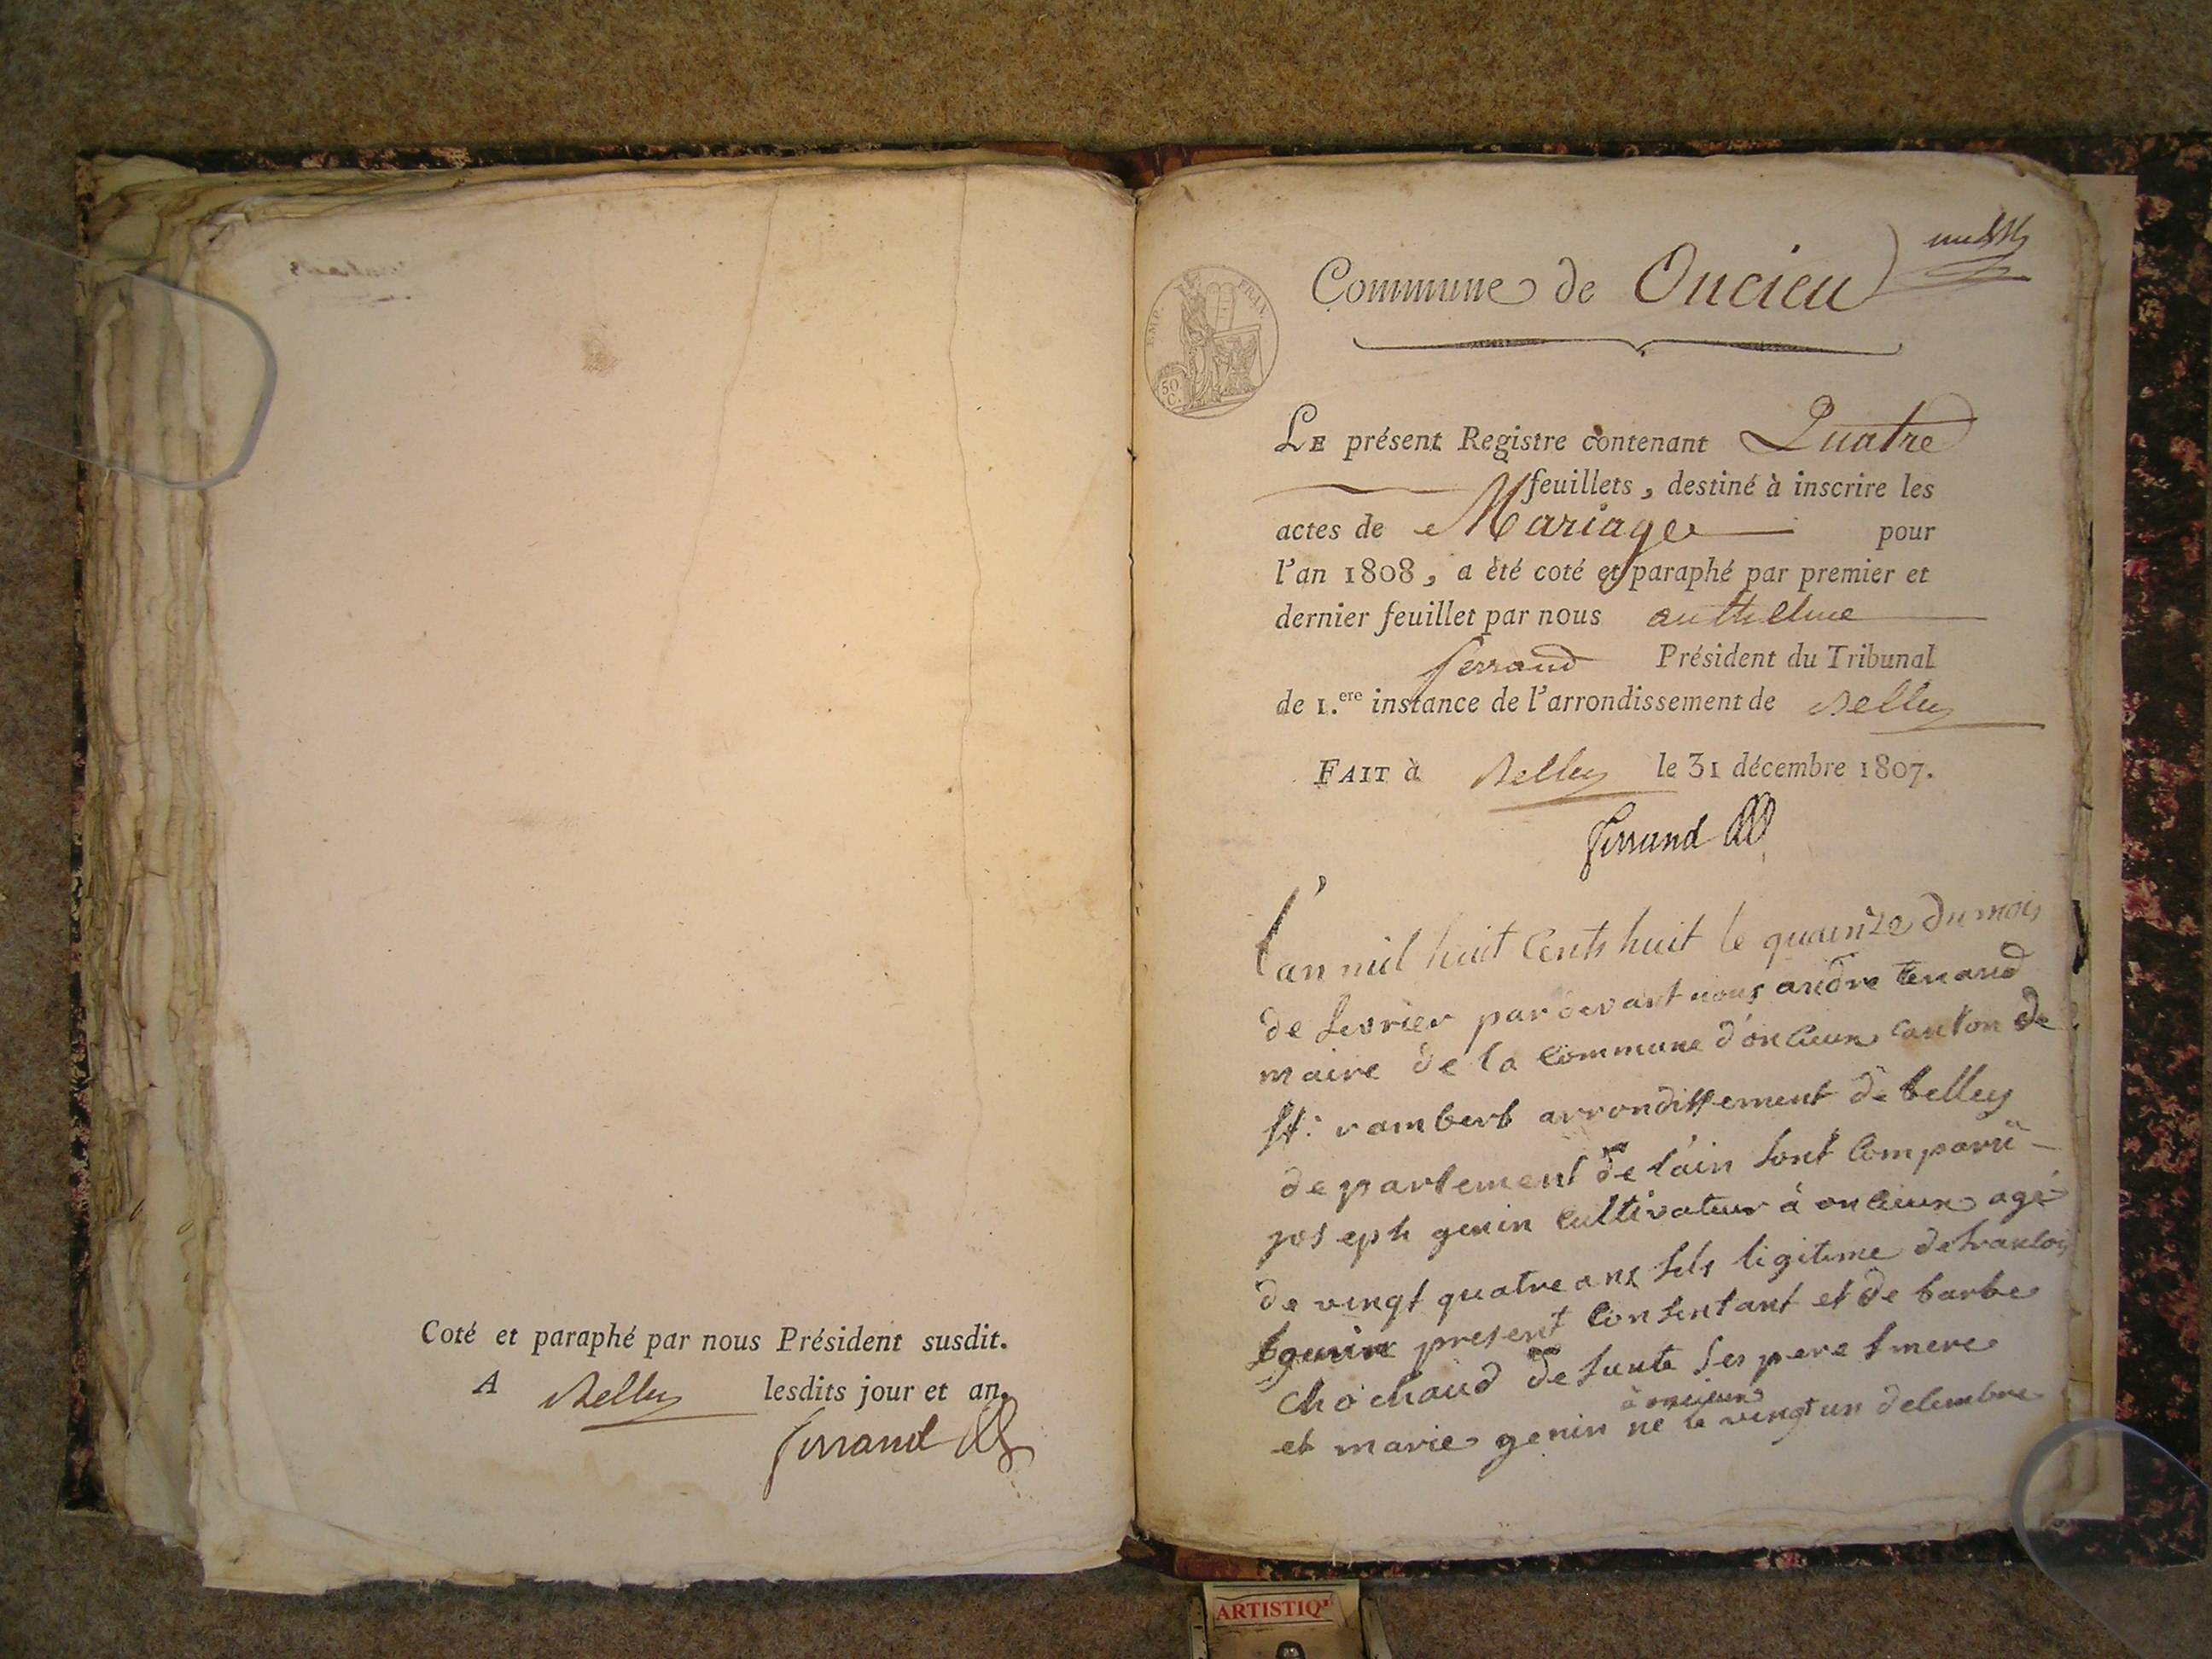 Coté et paraphé par nous Président susdit.
A Belley lesdits jour et an.
Ferrand
Commune de Oncieu
IMP. FRAN.
50 C.
LE présent Registre contenant Quatre
feuillets, destiné à inscrire les
actes de Mariage pour
l'an 1808, a été coté et paraphé par premier et
dernier feuillet par nous anthelme
ferrand Président du Tribunal
de 1.ere instance de l'arrondissement de Belley
FAIT à Belley le 31 décembre 1807.
Ferrand
l'an mil huit cents huit le quainze du mois
de fevrier pardevant nous andre tenand
maire de la commune d'oncieux canton de
st: rambert arrondissement de belley
departement de l'ain sont comparü
joseph genin cultivateur à oncieux agé
de vingt quatre ans fils ligitime de francois
genin present consentant et de barbe
chochaud defunte ses pere & mere
à oncieux
et marie genin né le vingt un decembre
ARTISTIQ